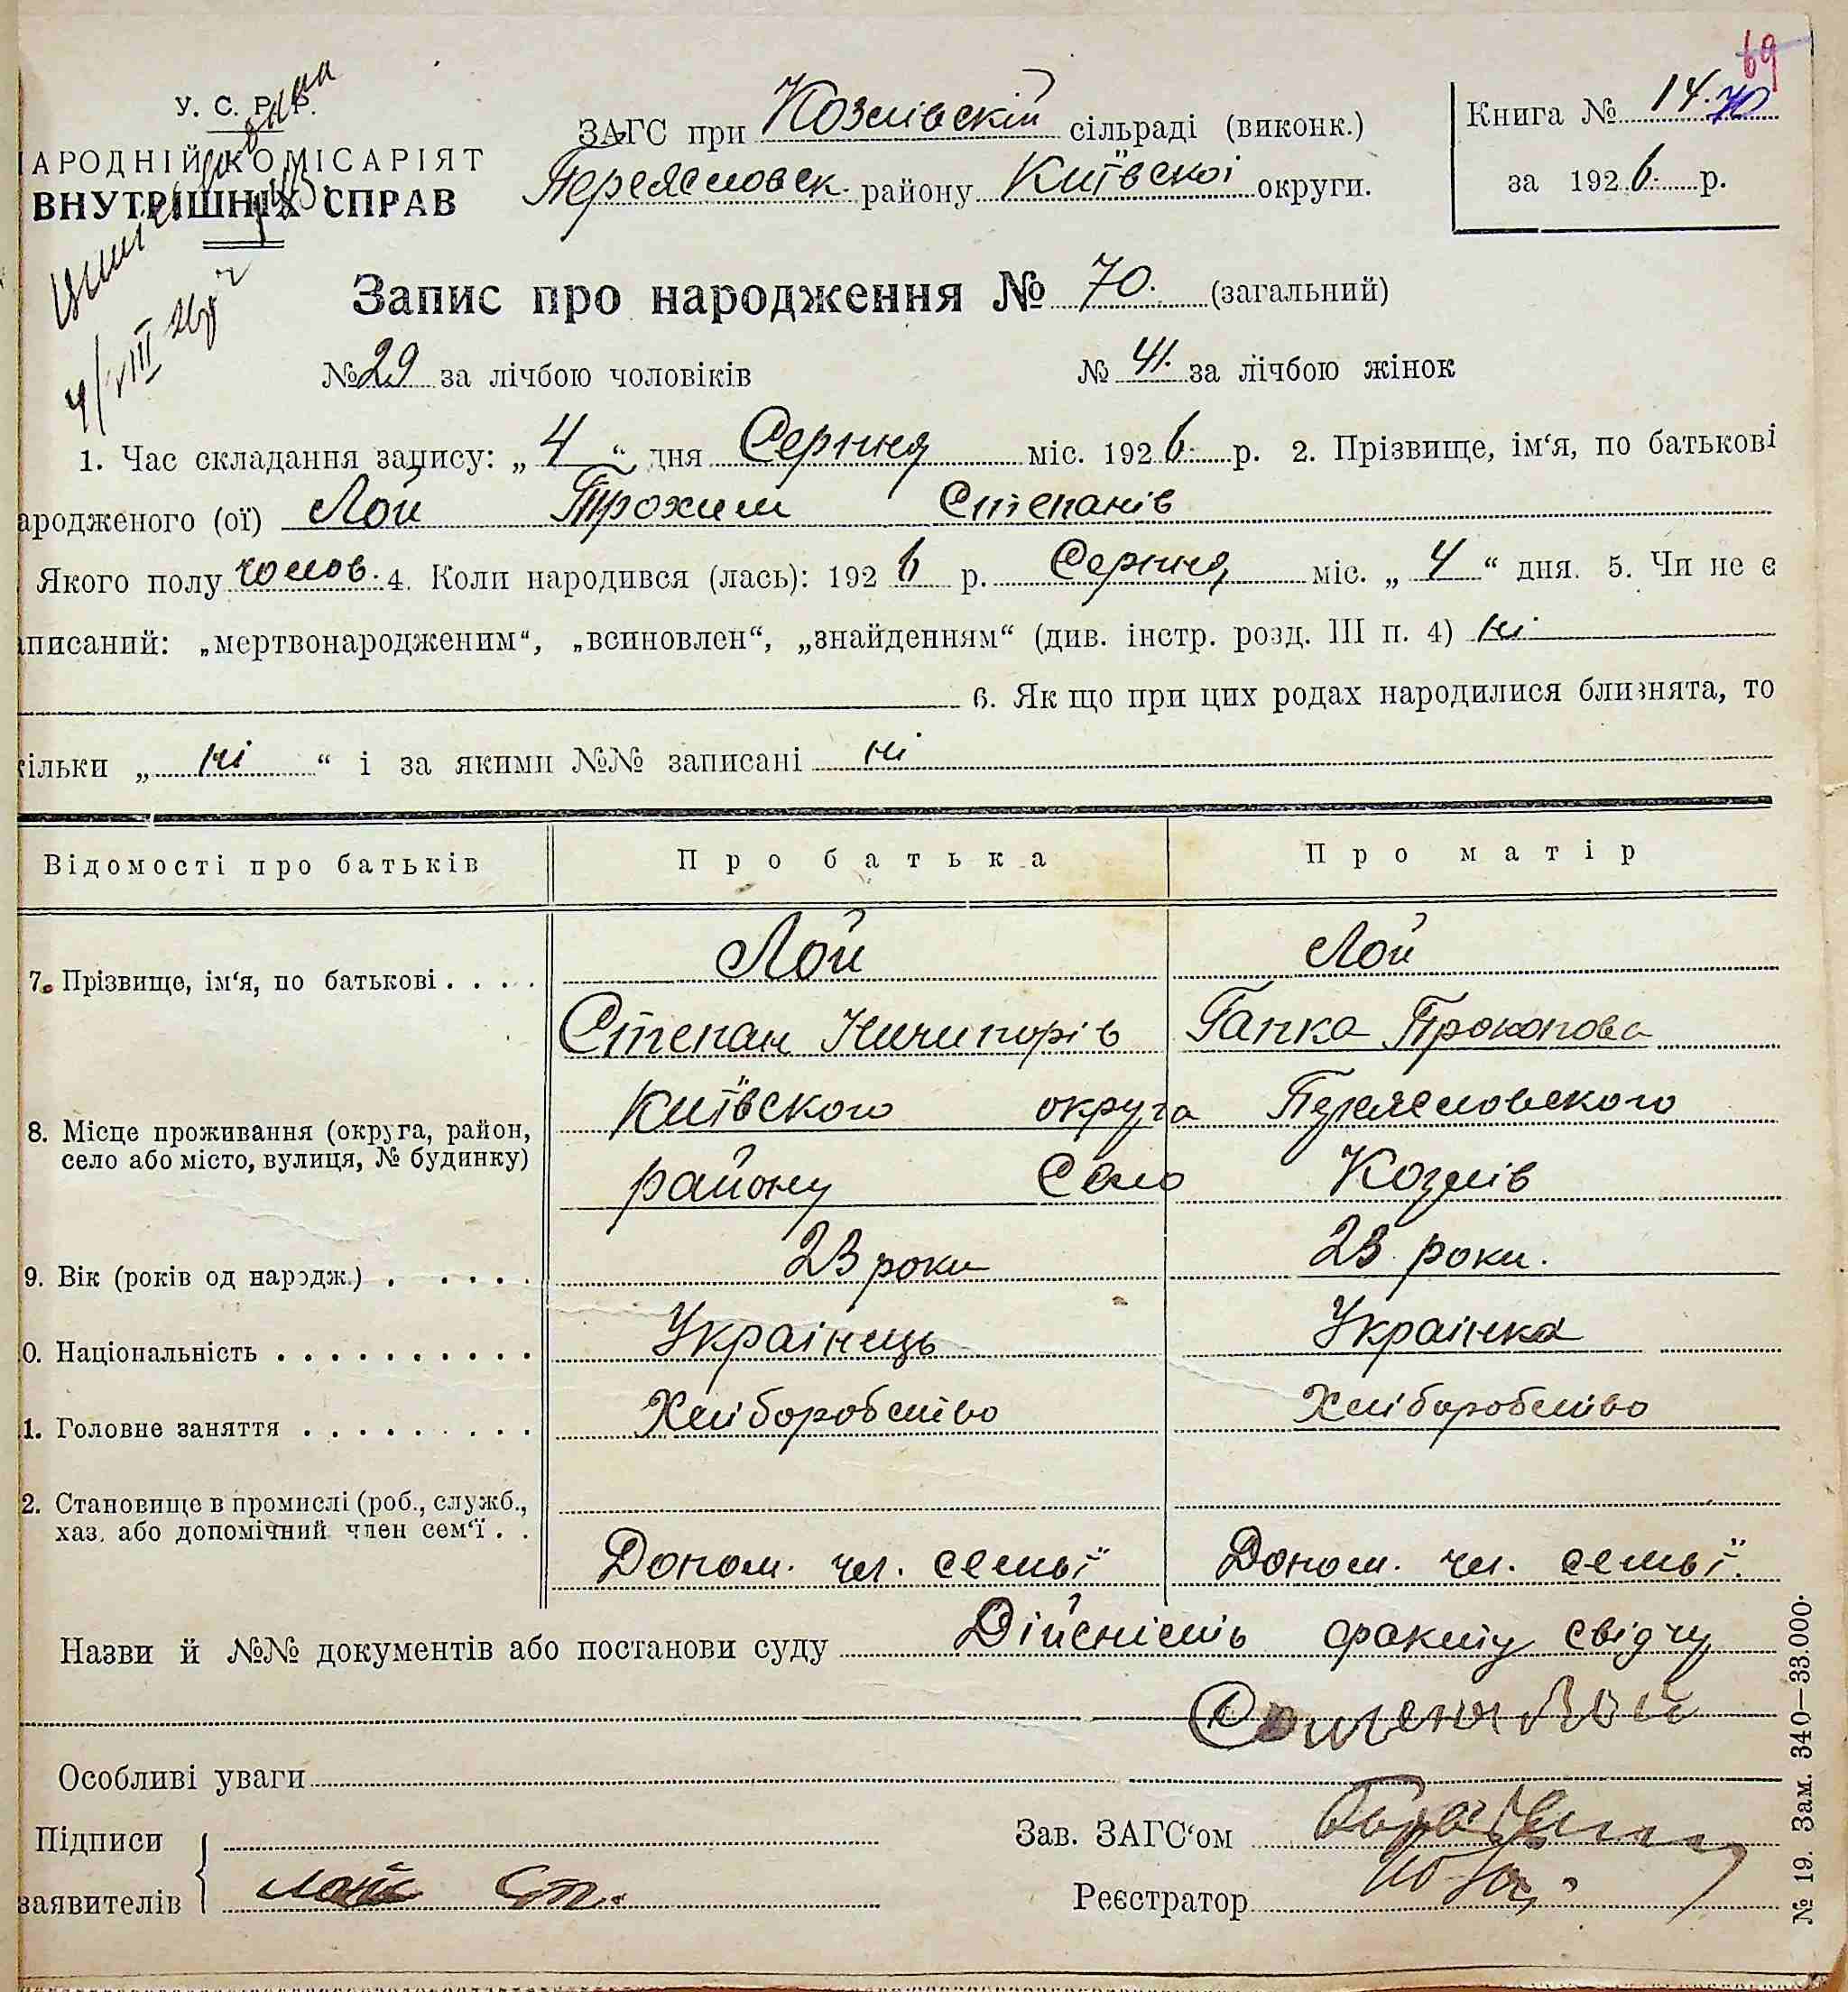 69
У. С. Р. Р.
АРОДНІЙ КОМІСАРІЯТ
ВНУТРІШНІХ СПРАВ
4/VIII 26р
ЗАГС при Козлівскій сільраді (виконк.)
Переясловск. району Київскоі округи.
Книга № 14. 70
за 1926. р.
Запис про народження № 70. (загальний)
№ 29 за лічбою чоловіків № 41. за лічбою жінок
1. Час складання запису: „ 4 “ дня Серпня міс. 1926. р. 2. Прізвище, ім‘я, по батькові
ародженого (ої) Лой Трохим Степанів
Якого полу чолов. 4. Коли народився (лась): 1926 р. Серпня міс. „ 4 “ дня. 5. Чи не є
аписаний: „мертвонародженим“, „всиновлен“, „знайденням“ (див. інстр. розд. III п. 4) ні
6. Як що при цих родах народилися близнята, то
кільки „ ні “ і за якими №№ записані ні
Відомості про батьків Про батька Про матір
7. Прізвище, ім‘я, по батькові . . . . Лой Лой
Степан Ничипорів Гапка Прокопова
8. Місце проживання (округа, район, село або місто, вулиця, № будинку) Київского округа Переясловского
району Село Козлів
9. Вік (років од народж.) . . . . . 23 роки 23 роки.
0. Національність . . . . . . . . . . . Украінець Украінка
1. Головне заняття . . . . . . . . . Хліборобство Хліборобство
2. Становище в промислі (роб., служб.,
хаз. або допомічний член сем‘ї . .
Допом. чл. семьї Допом. чл. семьї.
Назви й №№ документів або постанови суду Дійсність факту свідчу
Лой
Особливі уваги
Підписи
заявителів Лой Ст.
Зав. ЗАГС‘ом
Реєстратор
№ 19. Зам. 340—33.000.